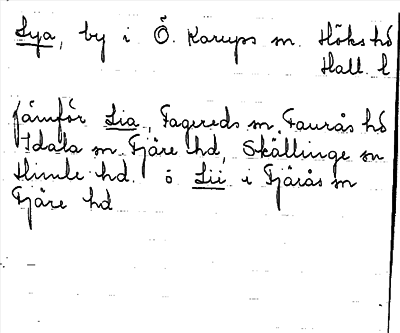 Lya, by i Ö. Karups sn. Höks hd
Hall. l
jämför Lia, Fagereds sn, Faurås hd
Idala sn Fjäre hd, Skällinge sn
Himle hd. o Lii i Fjärås sn
Fjäre hd